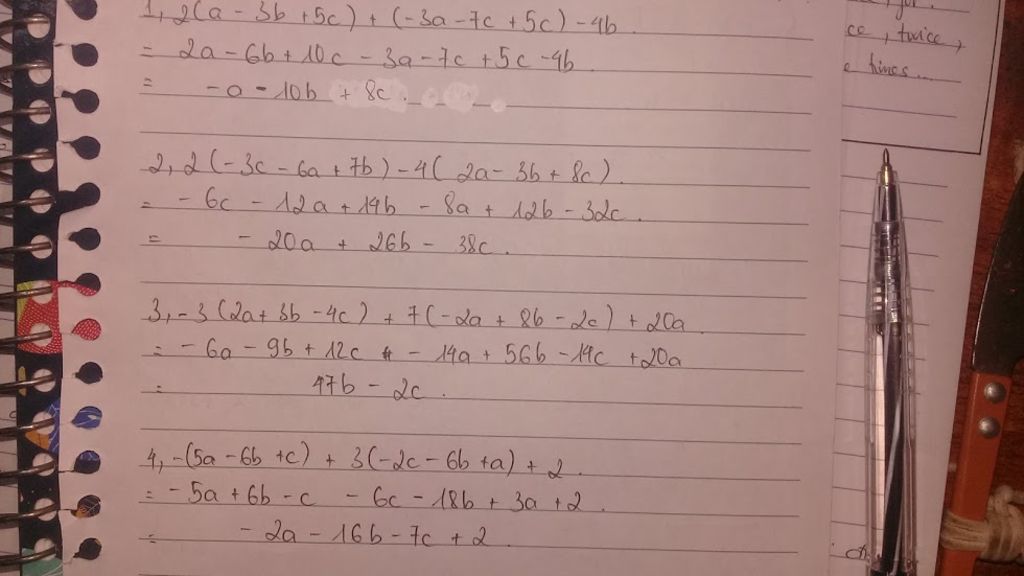 1, 2(a - 3b + 5c) + (-3a - 7c + 5c) - 4b
= 2a - 6b + 10c - 3a - 7c + 5c - 4b
= -a - 10b + 8c.
2, 2(-3c - 6a + 7b) - 4(2a - 3b + 8c).
= -6c - 12a + 14b - 8a + 12b - 32c.
= -20a + 26b - 38c.
3, -3(2a + 3b - 4c) + 7(-2a + 8b - 2c) + 20a.
= -6a - 9b + 12c - 14a + 56b - 14c + 20a
= 47b - 2c.
4, -(5a - 6b + c) + 3(-2c - 6b + a) + 2.
= -5a + 6b - c - 6c - 18b + 3a + 2.
= -2a - 16b - 7c + 2.
ce, twice,
e times...